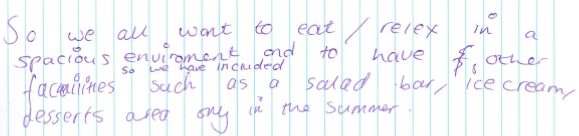 So we all want to eat / relex in a
spacious enviroment and to have other
so we have included
facailities such as a salad bar, ice cream,
desserts area ony in the summer.